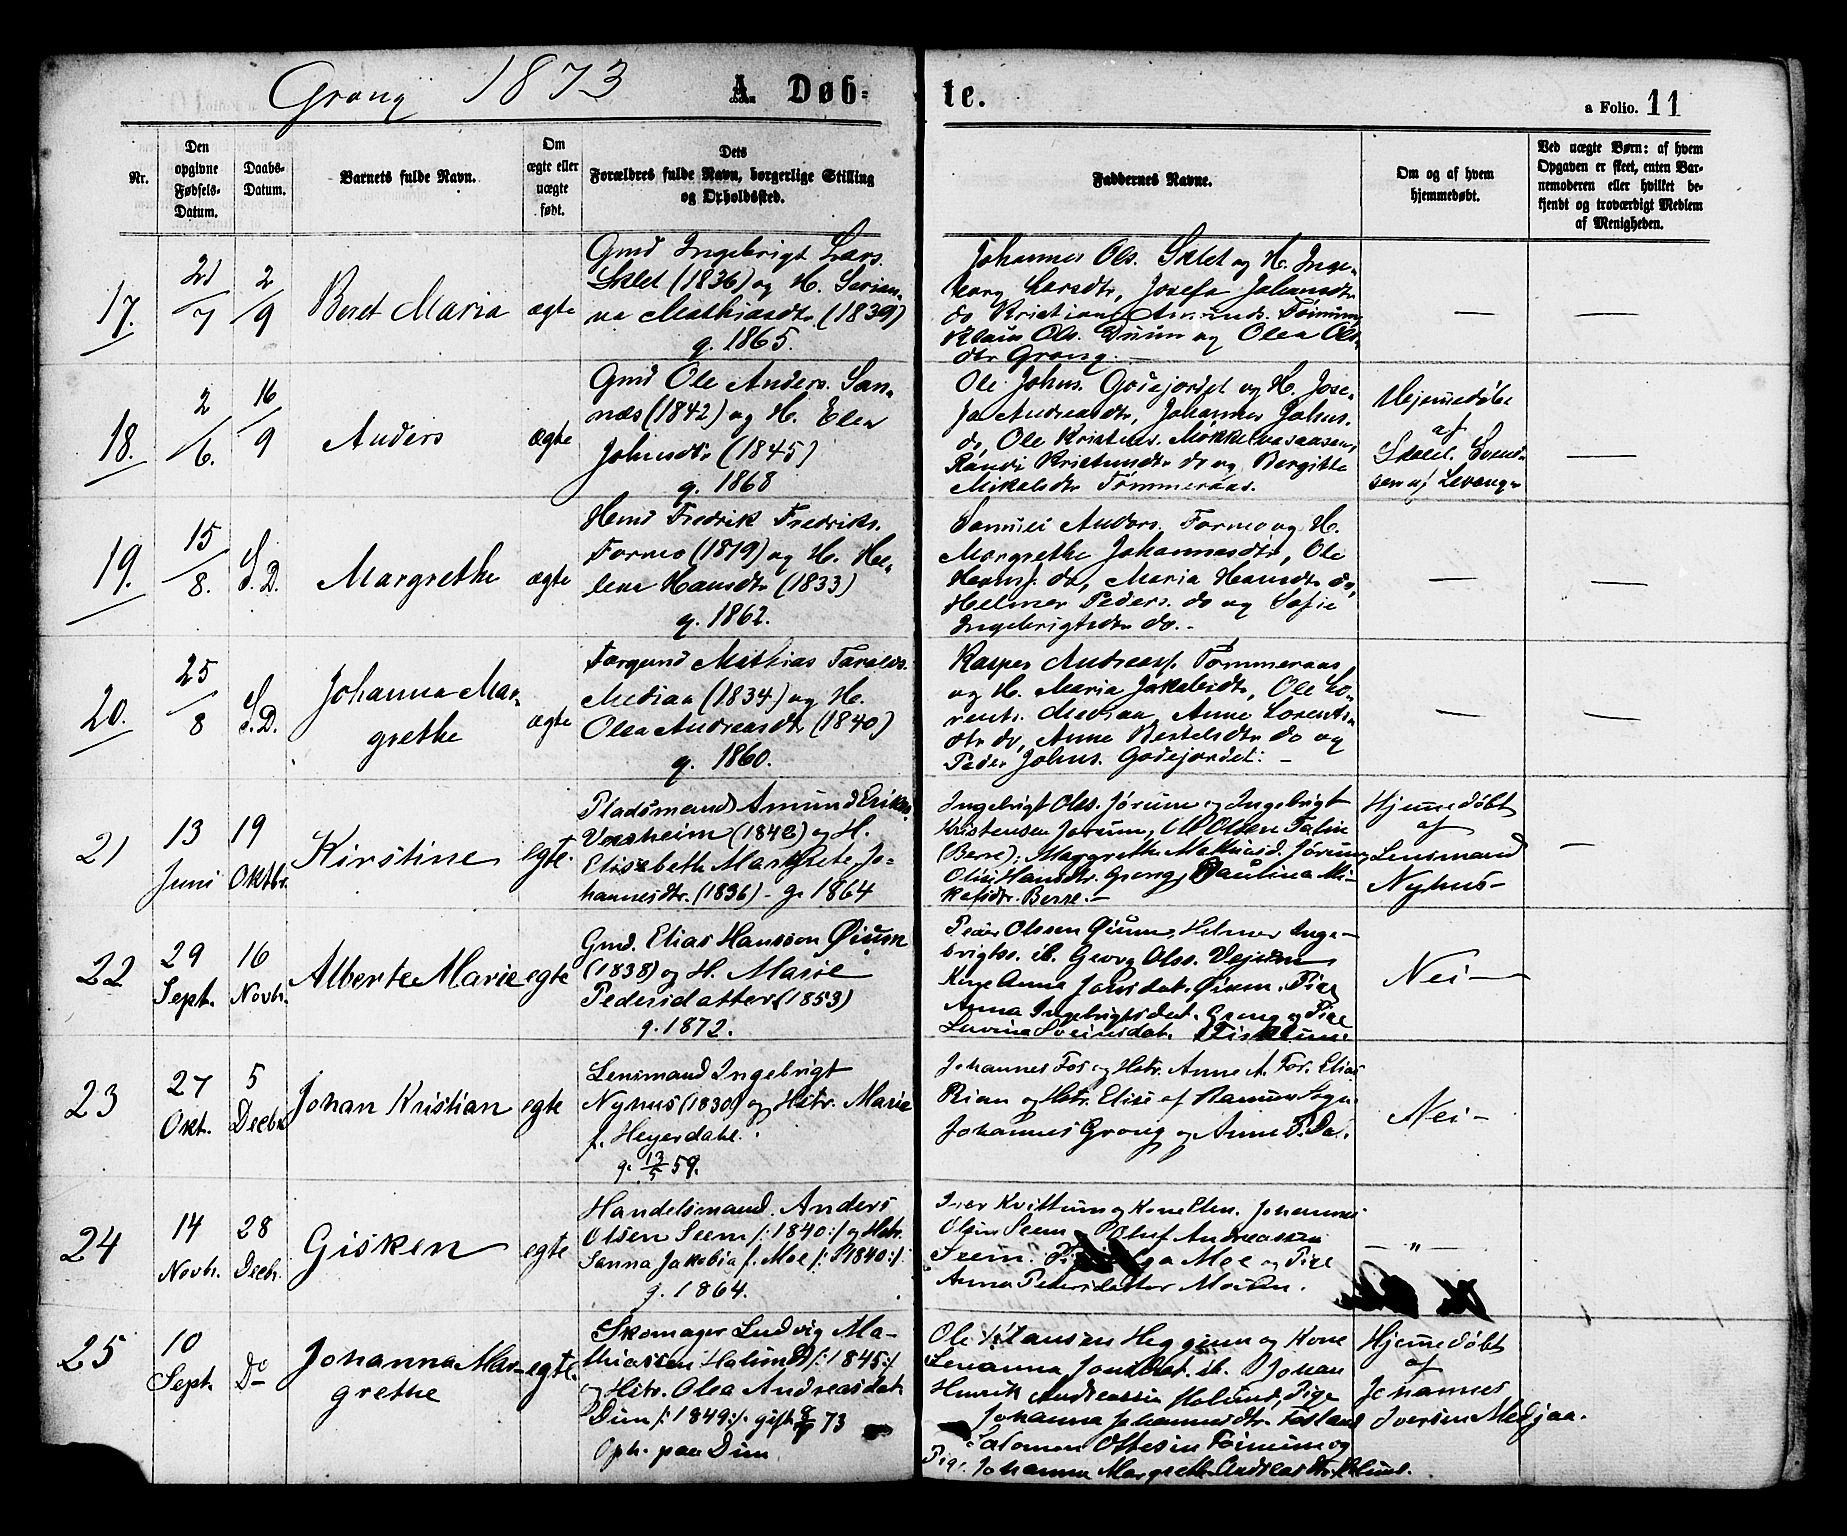 Grong 1873 A. Døb- te. a Folio. 11
Nr.
Den opgivne Fødsels-Datum.
Daabs-Datum.
Barnets fulde Navn.
Om ægte eller uægte født.
Dets Forældres fulde Navn, borgerlige Stilling og Opholdssted.
Faddernes Navne.
Om og af hvem hjemmedøbt.
Ved uægte Børn: af hvem Opgaven er skeet, enten Barnemoderen eller hvilket bekjendt og troværdigt Medlem af Menigheden.
17. 21/7 2/9 Beret Maria ægte
Gmd Ingebrigt Lars.
Sklet (1836) og H. Serian-
na Mathiasdtr (1839)
g. 1865.
Johannes Ols. Sklet og H. Inge-
borg Larsdtr, Josefa Johansdtr
do Kristian Amunds. Tømmer
Klaus Ols. Duun og Olea Ols-
dtr Grong. —
— —
18. 2/6. 16/9 Anders ægte
Gmd Ole Anders. San-
næs (1842) og H. Elen
Johnsdtr (1845)
g. 1868
Ole Johns. Godejordet og H. Jose-
fa Andreasdtr, Johannes Johns.
do, Ole Kristens. Møkkelvasaasen,
Randi Kristundtr do og Bergitte
Mikalsdtr Tømmeraas.
Hjemmedøbt
af
Skoll. Svend-
sen af Levanger
—
19. 15/8. S.D. Margrethe ægte
Hmd Fredrik Fredriks.
Formo (1819) og H. He-
lene Hansdtr (1833)
g. 1862.
Samuel Anders. Formo og H.
Margrethe Johannesdtr, Ole
Hansf. do, Maria Hansdtr do,
Helmer Peders. do og Sofie
Ingebrigtsdtr do. -
— —
20. 25/8 S.D. Johanna Mar-
grethe ægte
Forgmd Mathias Taralds.
Mediaa (1834) og H.
Olea Andreasdtr (1840)
g. 1860.
Kasper Andreasf. Tømmeraas
og H. Maria Jakobsdtr, Ole Lo-
rents. Mediaa, Anne Lorents-
dtr do, Anne Bertelsdtr do og
Peder Johns. Godejordet. —
— —
21 13 Juni 19 Oktbr. Kirstine egte.
Pladsmand Amund Eriks.
Vesheim (1842) og H.
Elisabeth Margrete Jo-
hannesdtr. (1836) - g. 1864
Ingebrigt Ols. Jørum og Ingebrigt
Kristensen Jørum, Ol Olsen Fatin
(Berre), Margrethe Mathiasd. Jørum,
Oline Hansdtr. Grong, Paulina Mi-
kalsdtr. Berre. —
Hjemmedøbt
af
Lensmand
Nyhus-
—
22 29 Sept. 16 Novb. Alberte Marie egte
Gmd. Elias Hansson Øium
(1838) og H. Marie
Pedersdatter (1853)
g. 1872.
Peder Olssen Øium, Helmer Inge-
brigtss. ib. Georg Olss. Vejem
Kone Anna Jonsdat. Øium. Pige
Anna Ingebrigtsdat. Grong og Pige
Lovina Sveinsdat. Fiskum.
Nei —
23 27 Okt. 5 Decbr. Johan Kristian egte
Lensmand Ingebrigt
Nyhus (1830) og Hstr. Marie
f. Heyerdahl.
g. 13/5 59.
Johannes Fos og Hstr. Anne A. Fos. Elias
Rian og Hstr. Elise af Ranem Sogn
Johannes Grong og Anne P. Do.
Nei —
24 14 Novb. 28 Decb. Gisken egte
Handelsmand. Anders
Olsen Seem /: 1840 :/ og Hstr.
Sanna Jakobia f. Moe /: 1840 :/
g. 1864.
Iver Kvittum og Kone Elen. Johannes
Olsen Seem. Oluf Andreassen
Seem. Moe og Pige
Anna Pedersdatter Moilen.
— " —
25 10 Sept. Do Johanna Mar-
grethe egte.
Skomager Ludvig Ma-
thiassen Holund /: 1845 :/
og Hstr. Olea Andreasdat.
Duun /: 1849 :/. gift 73
Oph. paa Duun
Ole Hansen Heggeum og Kone
Lenanna Jonsdat. ib. Johan
Henrik Andreassen Holund, Pige
Johanna Johannesdtr. Fosland
Salomon Ottesen Tømmer og
Pige Johanna Margrethe Andreasdtr.
Hjemmedøbt
af
Johannes
Iversen Medjaa.